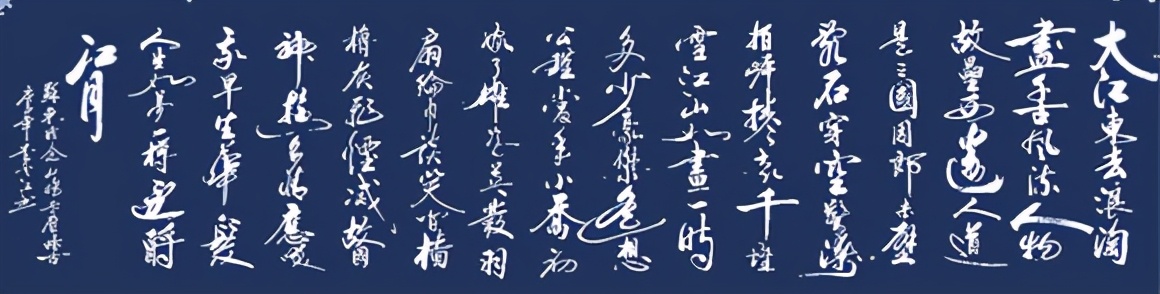 大江東去浪淘
盡千古風流人物
故壘西邊人道
是三國周郎赤壁
亂石穿空驚濤
拍岸捲起千堆
雪江山如畫一時
多少豪傑遙想
公瑾當年小喬初
嫁了雄姿英發羽
扇綸巾談笑間檣
櫓灰飛煙滅故國
神遊多情應笑
我早生華髮
人生如夢一樽還酹
江月